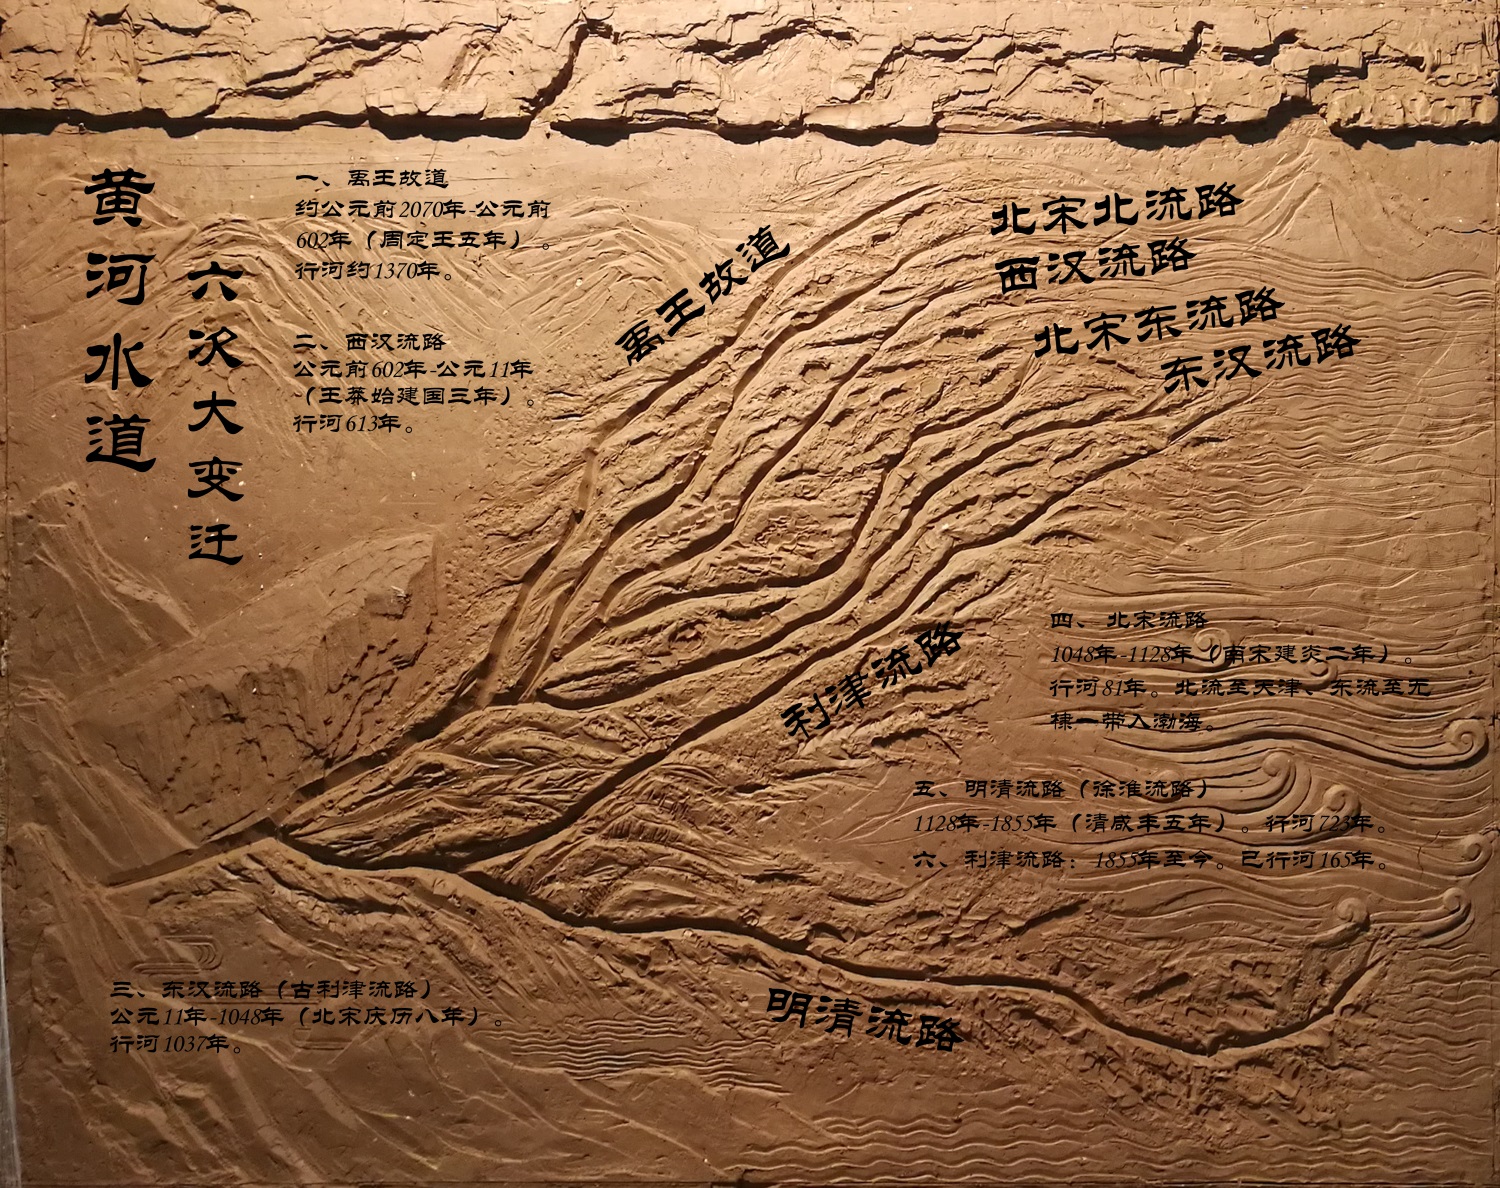 黄河水道
六次大变迁
一、禹王故道
约公元前2070年-公元前
602年（周定王五年）。
行河约1370年。
二、西汉流路
公元前602年-公元11年
（王莽始建国三年）。
行河613年。
禹王故道
北宋北流路
西汉流路
北宋东流路
东汉流路
利津流路
四、北宋流路
1048年-1128年（南宋建炎二年）。
行河81年。北流至天津、东流至无
棣一带入渤海。
五、明清流路（徐淮流路）
1128年-1855年（清咸丰五年）。行河723年。
六、利津流路：1855年至今。已行河165年。
三、东汉流路（古利津流路）
公元11年-1048年（北宋庆历八年）。
行河1037年。
明清流路